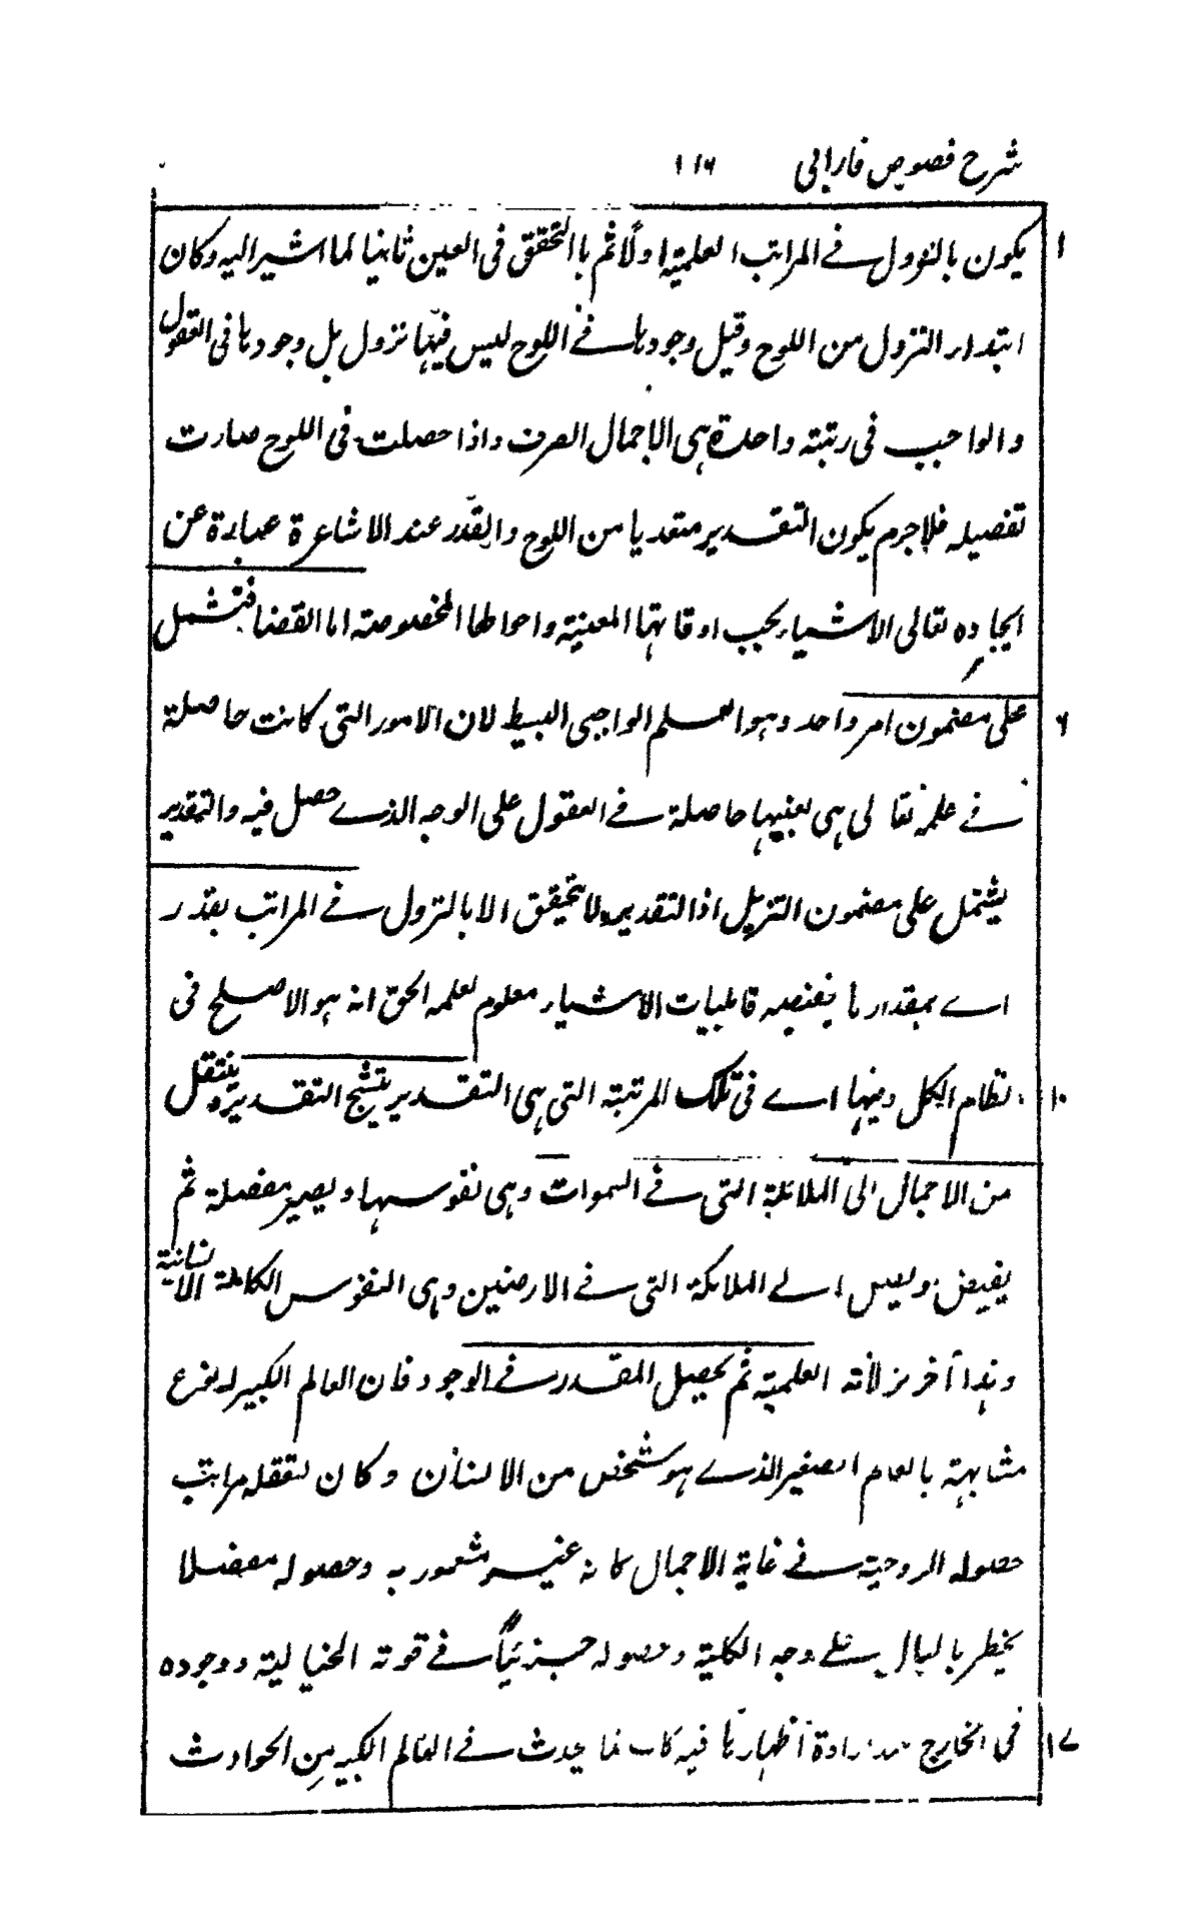 شرح فصوص فارابی ١١٦
١ يكون بالنزول فے المراتب العلميۃ اولًا ثم با التحقق فی العين ثانيا كما اشير اليہ وكان
ابتداء النزول من اللوح وقبل وجودہا فے اللوح ليس فيہا نزول بل وجودہا فی العقول
والواجب فی رتبۃ واحدۃ ہی الاجمال الصرف واذا حصلت فی اللوح صارت
تفصيلہ فلا جرم يكون التقدير متعديا من اللوح والقدر عند الاشاعرۃ عبارۃ عن
ايجادہ تعالی الاشياء بحسب اوقاتہا المعنيۃ واحوالها المخصوصۃ اما القضا فيشتمل
٦ علی مضمون امر واحد وہو العلم الواجبی البسيط لان الامور التی كانت حاصلۃ
فے علمہ تعالی ہی بعينہا حاصلۃ فے العقول علی الوجہ الذے حصل فيہ والتقدير
يشتمل علی مضمون التنزيل اذ التقدير لا يتحقق الا بالنزول فے المراتب بقدر
اے بمقدار ما يقتضيہ قابليات الاشياء معلوم لعلمہ الحق انہ ہو الاصلح فی
١٠ نظام الكل ومنہا اے فی تلك المرتبۃ التی ہی التقدير يتشبح التقدير وينتقل
من الاجمال الی الملائكۃ التی فے السموات وہی نفوسہا ويصير مفصلۃ ثم
يفيض ويصل الے الملائكۃ التی فے الارضين وہی النفوس الكاملۃ الانسانيۃ
وہذا آخر تنزلاتہ العلميۃ ثم يحصل المقدر فے الوجود فان العالم الكبير لہ نوع
مشابہۃ بالعالم الصغير الذے ہو شخص من الانسان وكان لتعقلہ مراتب
حصولہ الروحيۃ فے غايۃ الاجمال كانہ غير مشعور بہ وحصولہ مفصلا
يخطر بالبال علے وجہ الكليۃ وحصولہ جزئيًا فے قوتہ الخياليۃ ووجودہ
١٧ فی الخارج عند ارادۃ اظہار ما فيہ كك فما يحدث فے العالم الكبير من الحوادث